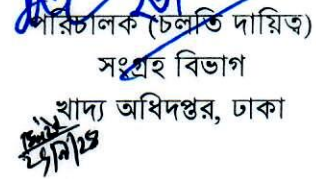 পরিচালক (চলতি দায়িত্ব)
সংগ্রহ বিভাগ
খাদ্য অধিদপ্তর, ঢাকা